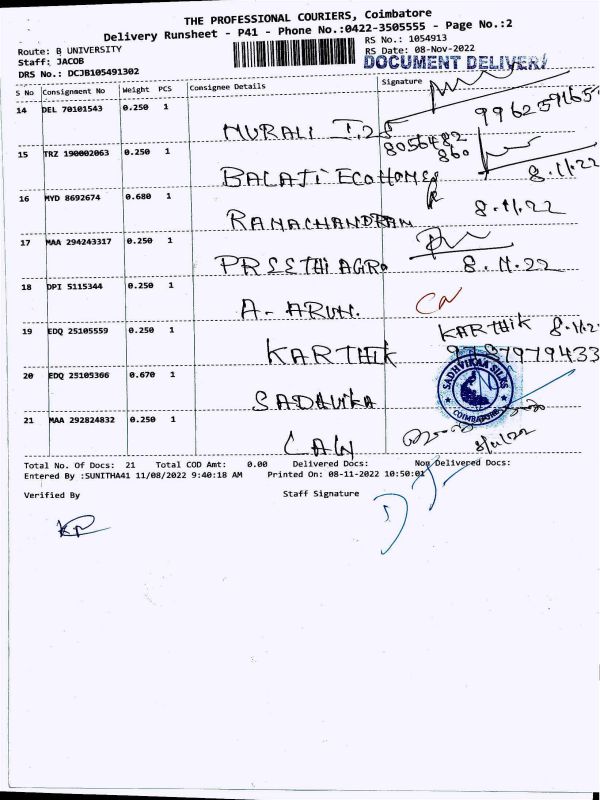 THE PROFESSIONAL COURIERS, Coimbatore
Delivery Runsheet - P41 - Phone No.:0422-3505555 - Page No.:2
Route: B UNIVERSITY
RS No.: 1054913
Staff: JACOB
RS Date: 08-Nov-2022
DRS No.: DCJB105491302
DOCUMENT DELIVERY
S No Consignment No Weight PCS Consignee Details Signature
14 DEL 70101543 0.250 1
MURALI I.25
15 TRZ 190002063 0.250 1
8056482
860
BALAJI ECO HOMES 8.11.22
16 MYD 8692674 0.680 1
RAMACHANDRAN 8.11.22
17 MAA 294243317 0.250 1
PREETHI AGRO 8.11.22
18 DPI 5115344 0.250 1
A. ARUN.
19 EDQ 25105559 0.250 1
KARTHIK 8.11.2
KARTHIK 9787979433
20 EDQ 25105366 0.670 1
SADHVIKAA SILKS
COIMBATORE
SADHVIKA
21 MAA 292824832 0.250 1
LAW 8/11/22
Total No. Of Docs: 21 Total COD Amt: 0.00 Delivered Docs: Non Delivered Docs:
Entered By :SUNITHA41 11/08/2022 9:40:18 AM Printed On: 08-11-2022 10:50:01
Verified By Staff Signature